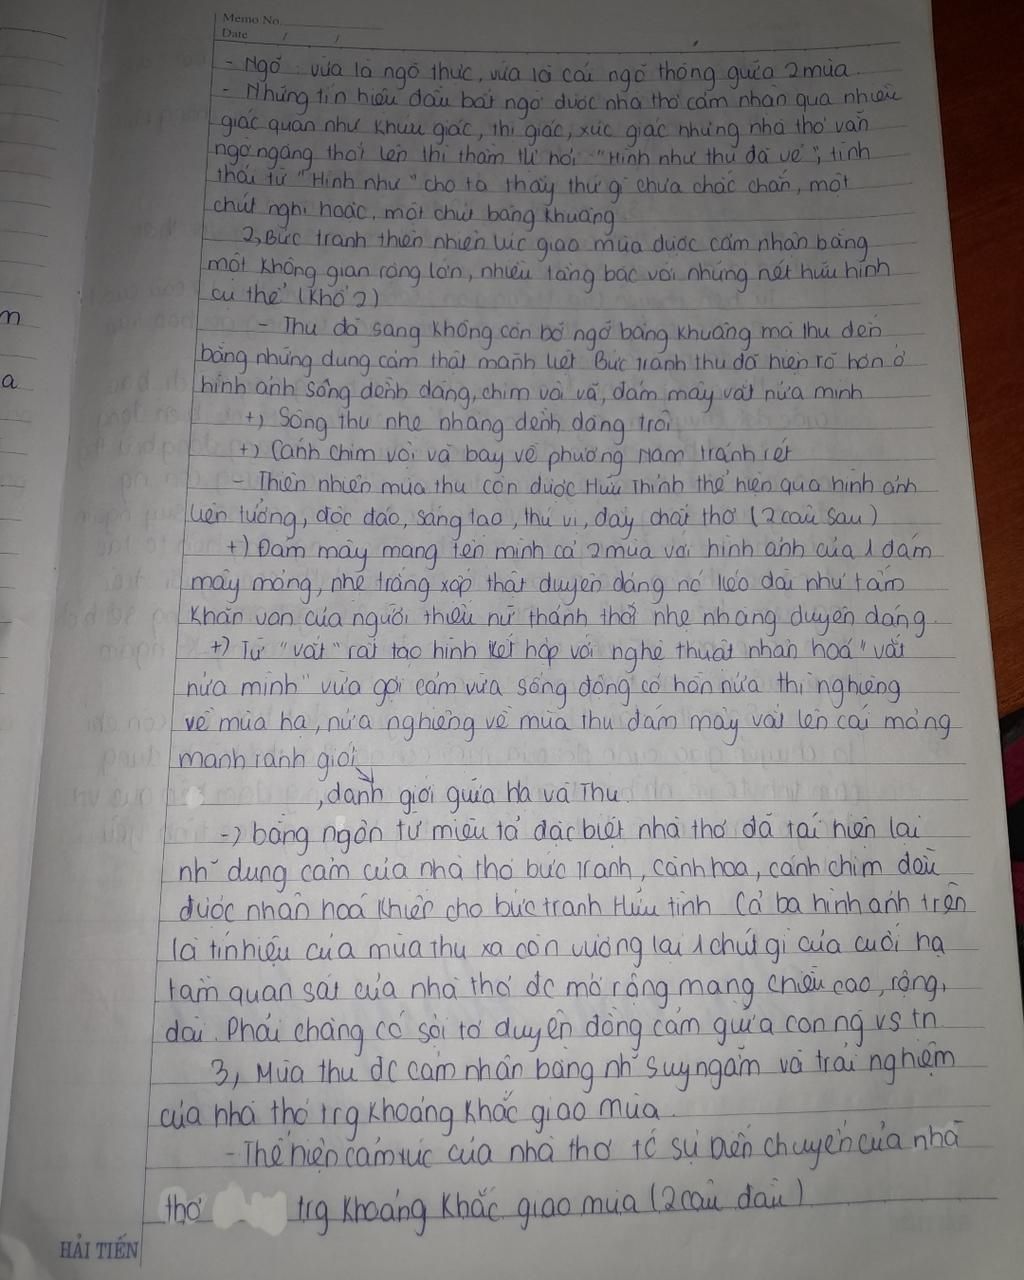 Memo No.
Date / /
- Ngõ : vừa là ngõ thực, vừa là cái ngõ thông giữa 2 mùa.
- Những tín hiệu đầu bất ngờ được nhà thơ cảm nhận qua nhiều
giác quan như khứu giác, thị giác, xúc giác nhưng nhà thơ vẫn
ngỡ ngàng thốt lên thì thầm tự hỏi "Hình như thu đã về", tình
thái từ "Hình như" cho ta thấy thứ gì chưa chắc chắn, một
chút nghi hoặc, một chút bâng khuâng
2, Bức tranh thiên nhiên lúc giao mùa được cảm nhận bằng
một không gian rộng lớn, nhiều tầng bậc với những nét hữu hình
cụ thể (Khổ 2)
- Thu đã sang không còn bỡ ngỡ bâng khuâng mà thu đến
bằng những dung cảm thật mãnh liệt Bức tranh thu đã hiện rõ hơn ở
hình ảnh sông dềnh dàng, chim vội vã, đám mây vắt nửa mình
+) Sông thu nhẹ nhàng dềnh dàng trôi
+) Cánh chim vội vã bay về phương Nam tránh rét
- Thiên nhiên mùa thu còn được Hữu Thỉnh thể hiện qua hình ảnh
liên tưởng, độc đáo, sáng tạo, thú vị, đầy chất thơ (2 câu sau)
+) Đám mây mang tên mình cả 2 mùa với hình ảnh của 1 đám
mây mỏng, nhẹ trắng xốp thật duyên dáng nó kéo dài như tấm
khăn voan của người thiếu nữ thảnh thơi nhẹ nhàng duyên dáng.
+) Từ "vắt" rất tạo hình kết hợp với nghệ thuật nhân hoá "vắt
nửa mình" vừa gợi cảm vừa sống động có hồn nửa thì nghiêng
về mùa hạ, nửa nghiêng về mùa thu đám mây vắt lên cái mỏng
manh ranh giới
, danh giới giữa Hạ và Thu.
-) bằng ngôn từ miêu tả đặc biệt nhà thơ đã tái hiện lại
nh~ dung cảm của nhà thơ bức tranh, cành hoa, cánh chim đều
được nhân hoá khiến cho bức tranh Hữu tình Cả ba hình ảnh trên
là tín hiệu của mùa thu xa còn vương lại 1 chút gì của cuối hạ
tầm quan sát của nhà thơ đc mở rộng mang chiều cao, rộng,
dài. Phải chăng có sợi tơ duyên đồng cảm giữa con ng vs tn
3, Mùa thu đc cảm nhận bằng nh~ suy ngẫm và trải nghiệm
của nhà thơ trg khoảng khắc giao mùa.
- Thể hiện cảm xúc của nhà thơ sự biến chuyển của nhà
thơ trg khoảng khắc giao mùa (2 câu đầu)
HẢI TIẾN
m
a